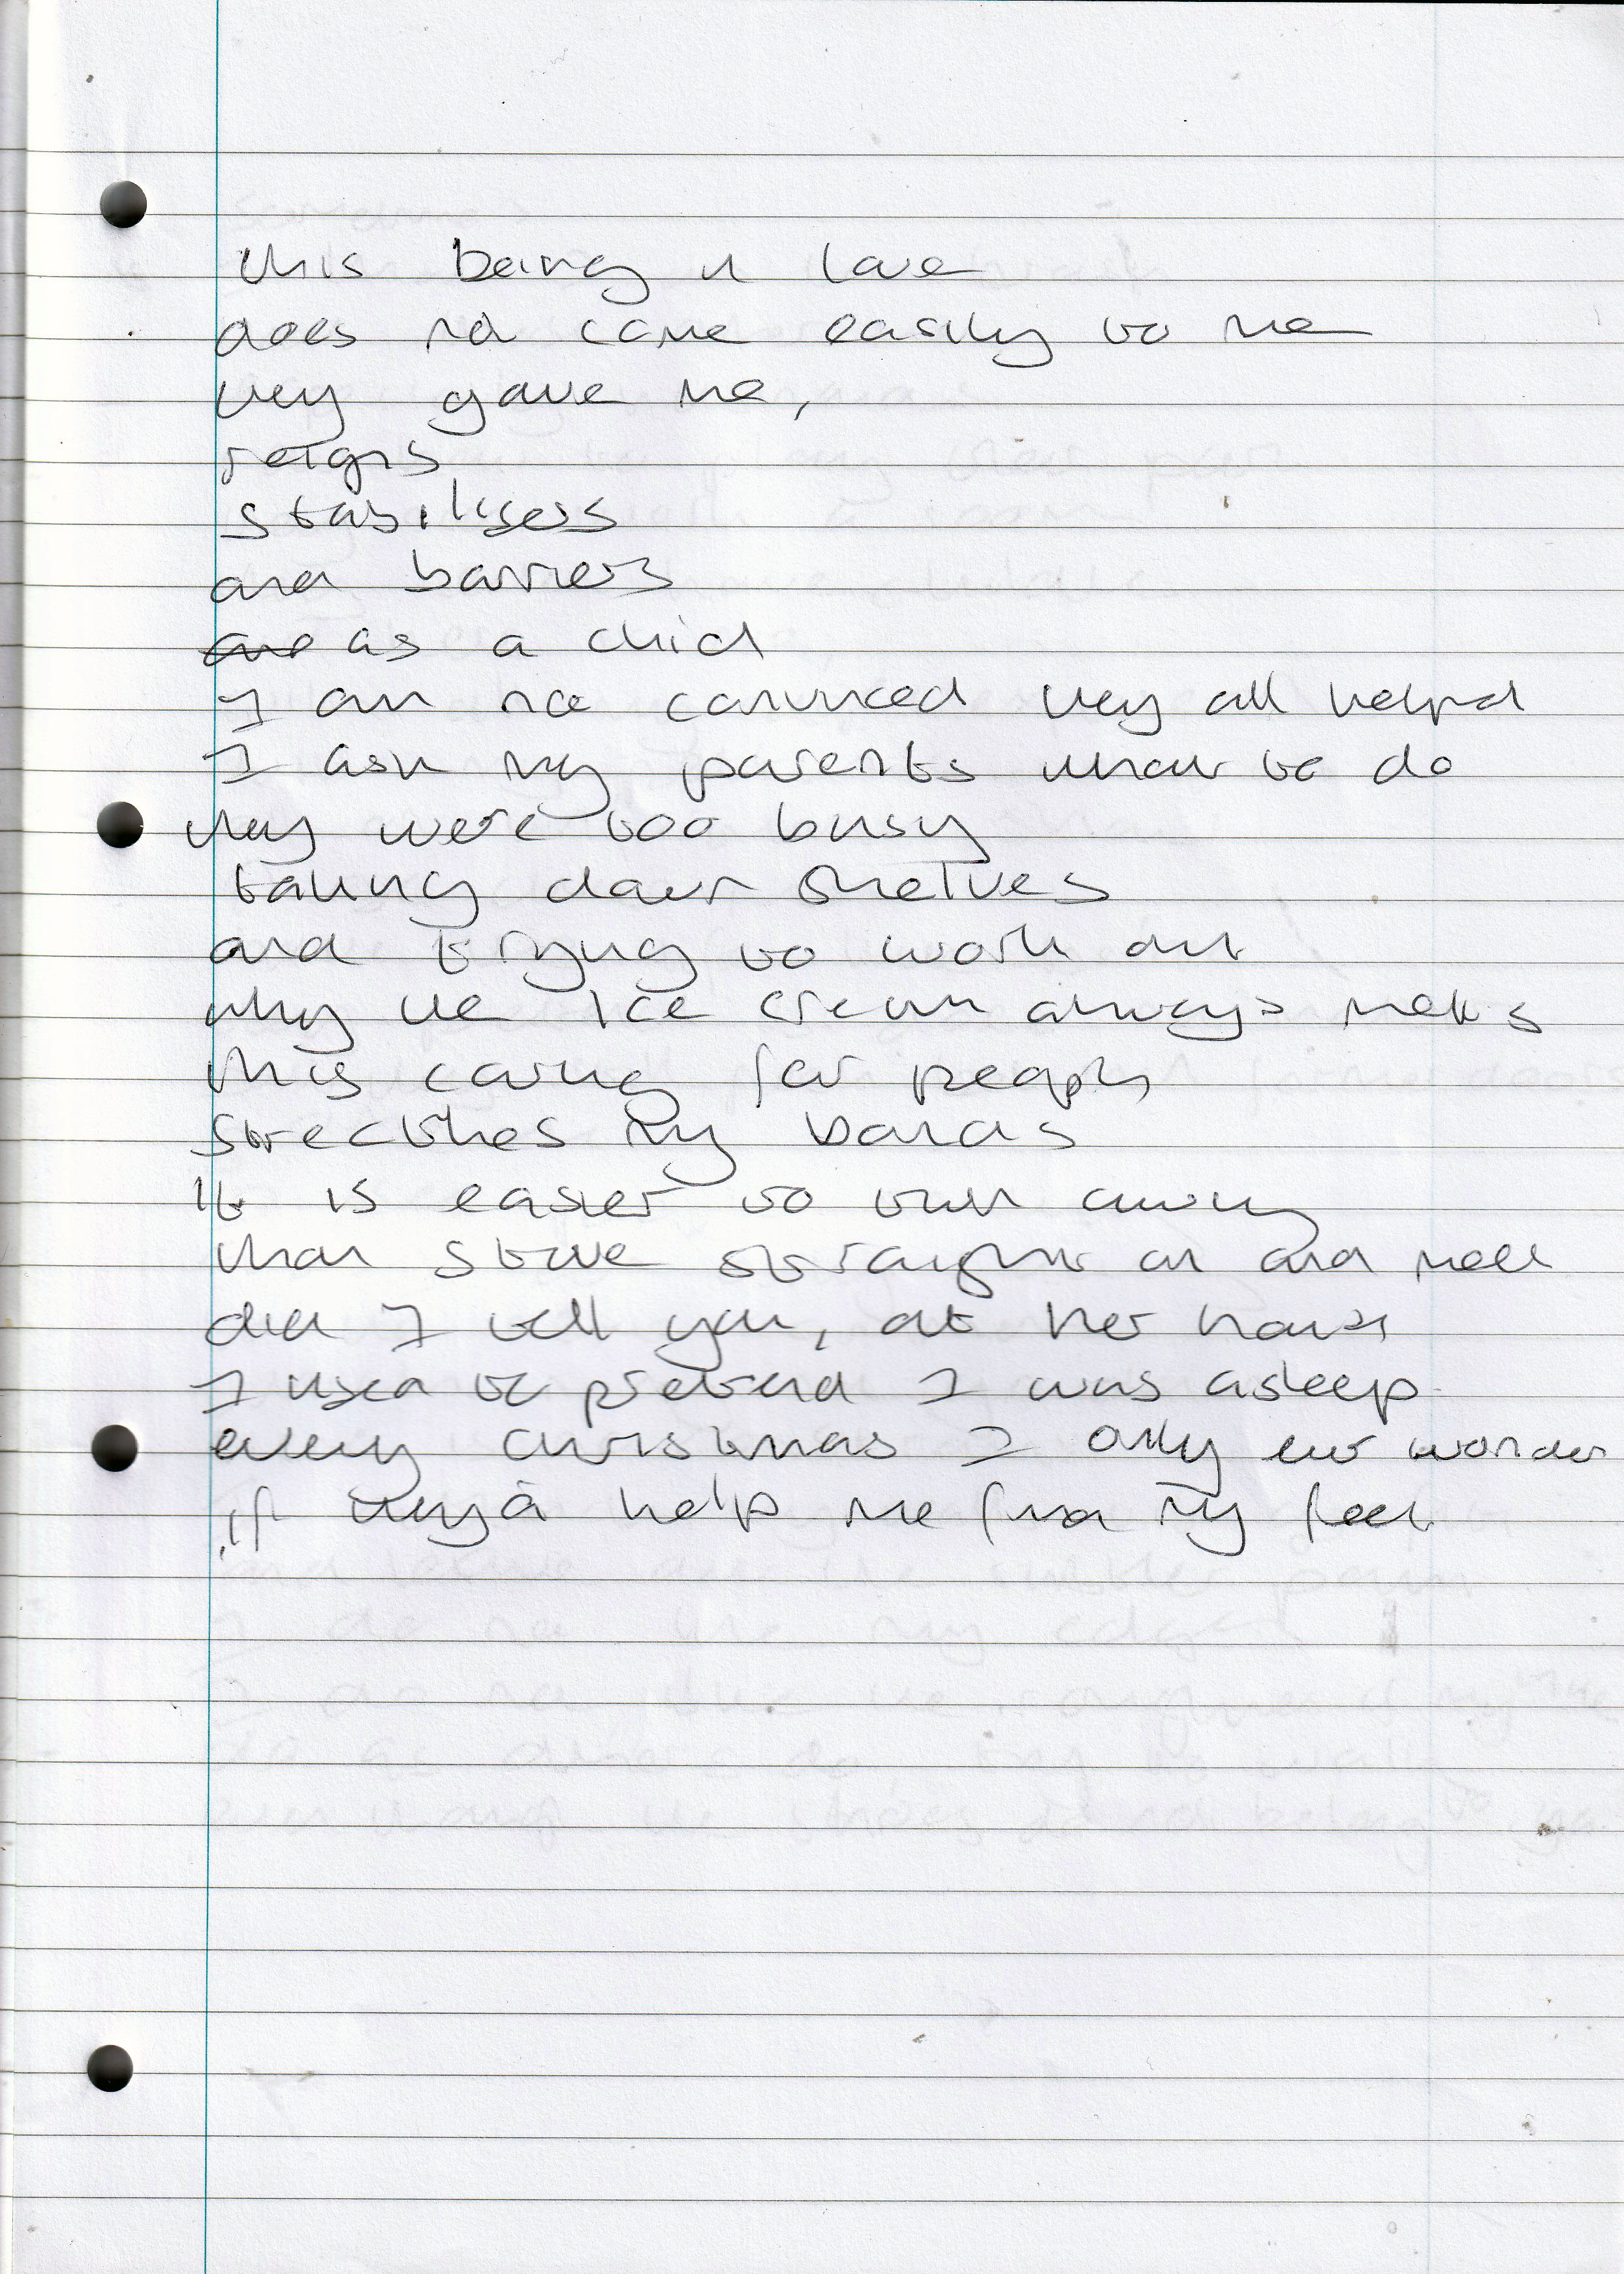 this being in love
does not come easily to me
they gave me,
reigns
stabilisers
and barriers
as a child
I am not convinced they all helped
I ask my parents what to do
they were too busy
taking down shelves
and trying to work out
why the ice cream always melts
this caring for people
strectches my bands
it is easier to turn away
than stare straight on and melt
did I tell you, at her house
I used to pretend I was asleep
every christmas I only ever wonder
if they'd help me find my feet